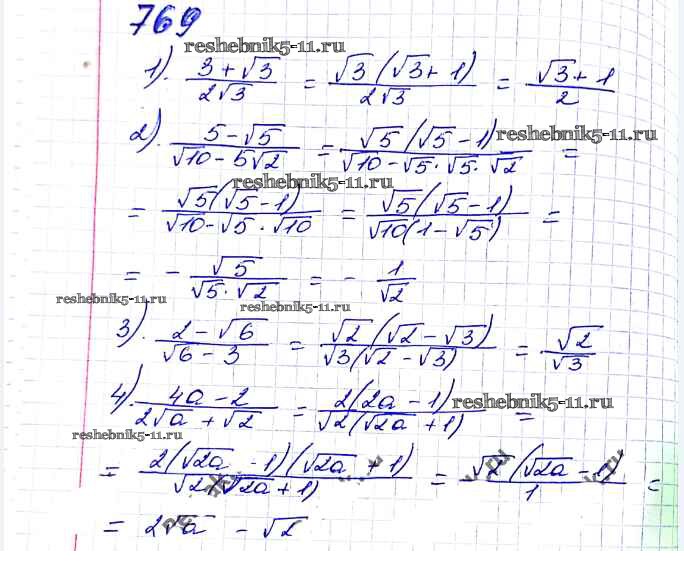 769
reshebnik5-11.ru
1). (3+√3)/(2√3) = (√3(√3+1))/(2√3) = (√3+1)/2
2). (5-√5)/(√10-5√2) = (√5(√5-1))/(√10-√5·√5·√2) =
reshebnik5-11.ru
reshebnik5-11.ru
= (√5(√5-1))/(√10-√5·√10) = (√5(√5-1))/(√10(1-√5)) =
= - √5/(√5·√2) = - 1/√2
reshebnik5-11.ru
reshebnik5-11.ru
3). (2-√6)/(√6-3) = (√2(√2-√3))/(√3(√2-√3)) = √2/√3
4). (4a-2)/(2√a+√2) = (2(2a-1))/(√2(√2a+1)) =
reshebnik5-11.ru
reshebnik5-11.ru
= (2(√2a-1)(√2a+1))/(√2(√2a+1)) = (√2(√2a-1))/1 =
= 2√a - √2